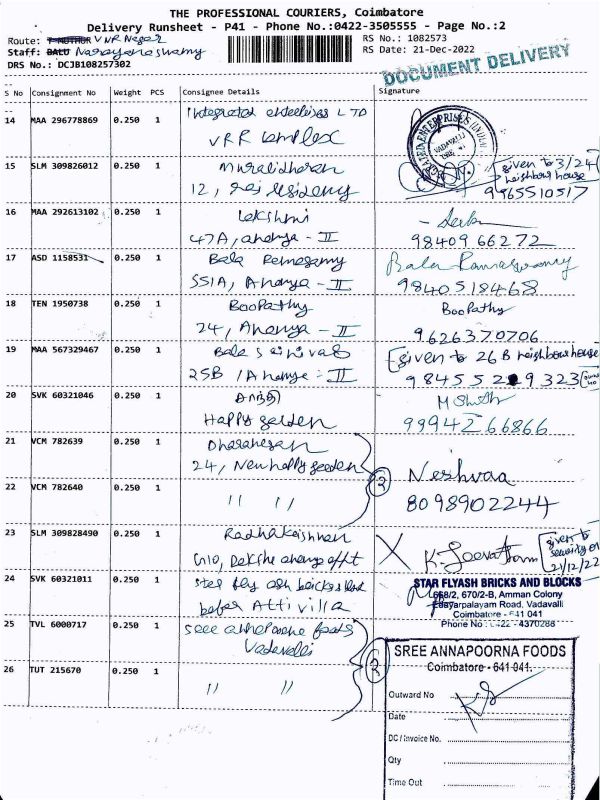 THE PROFESSIONAL COURIERS, Coimbatore
Delivery Runsheet - P41 - Phone No.:0422-3505555 - Page No.:2
Route: VNR Nagar
RS No.: 1082573
Staff: BALU Narayanaswamy
RS Date: 21-Dec-2022
DRS No.: DCJB108257302
DOCUMENT DELIVERY
S No Consignment No Weight PCS Consignee Details Signature
14 MAA 296778869 0.250 1 LTD
VRR Complex
15 SLM 309826012 0.250 1 Muralidharan
(given to 3/24
neighbour house
12, residency
9965510517
16 MAA 292613102 0.250 1 Lekshmi
47A, Ananya - II
98409 66272
17 ASD 1158531 0.250 1 Bala Ramasamy Bala Ramaswamy
551A, Ananya - II 9840518468
18 TEN 1950738 0.250 1 Boopathy Boopathy
24, Ananya - II 9626370706
19 MAA 567329467 0.250 1 Bala
(given to 26 B neighbour house
25B /Ananya - II 98455 2 9 323
20 SVK 60321046 0.250 1
Happy garden 99942 66866
21 VCM 782639 0.250 1
24, New happy garden
2
22 VCM 782640 0.250 1 " "
8098902244
23 SLM 309828490 0.250 1 Radhakrishnan
given to
security on
21/12/22
24 SVK 60321011 0.250 1 star fly ash bricks
STAR FLYASH BRICKS AND BLOCKS
668/2, 670/2-B, Amman Colony
Edayarpalayam Road, Vadavalli
Coimbatore - 641 041
Phone No : 0422 - 4370288
villa
25 TVL 6000717 0.250 1 sree annapoorna foods
Vadavalli
2
26 TUT 215670 0.250 1
" "
SREE ANNAPOORNA FOODS
Coimbatore - 641 041.
Outward No
Date
DC / Invoice No.
Qty
Time Out